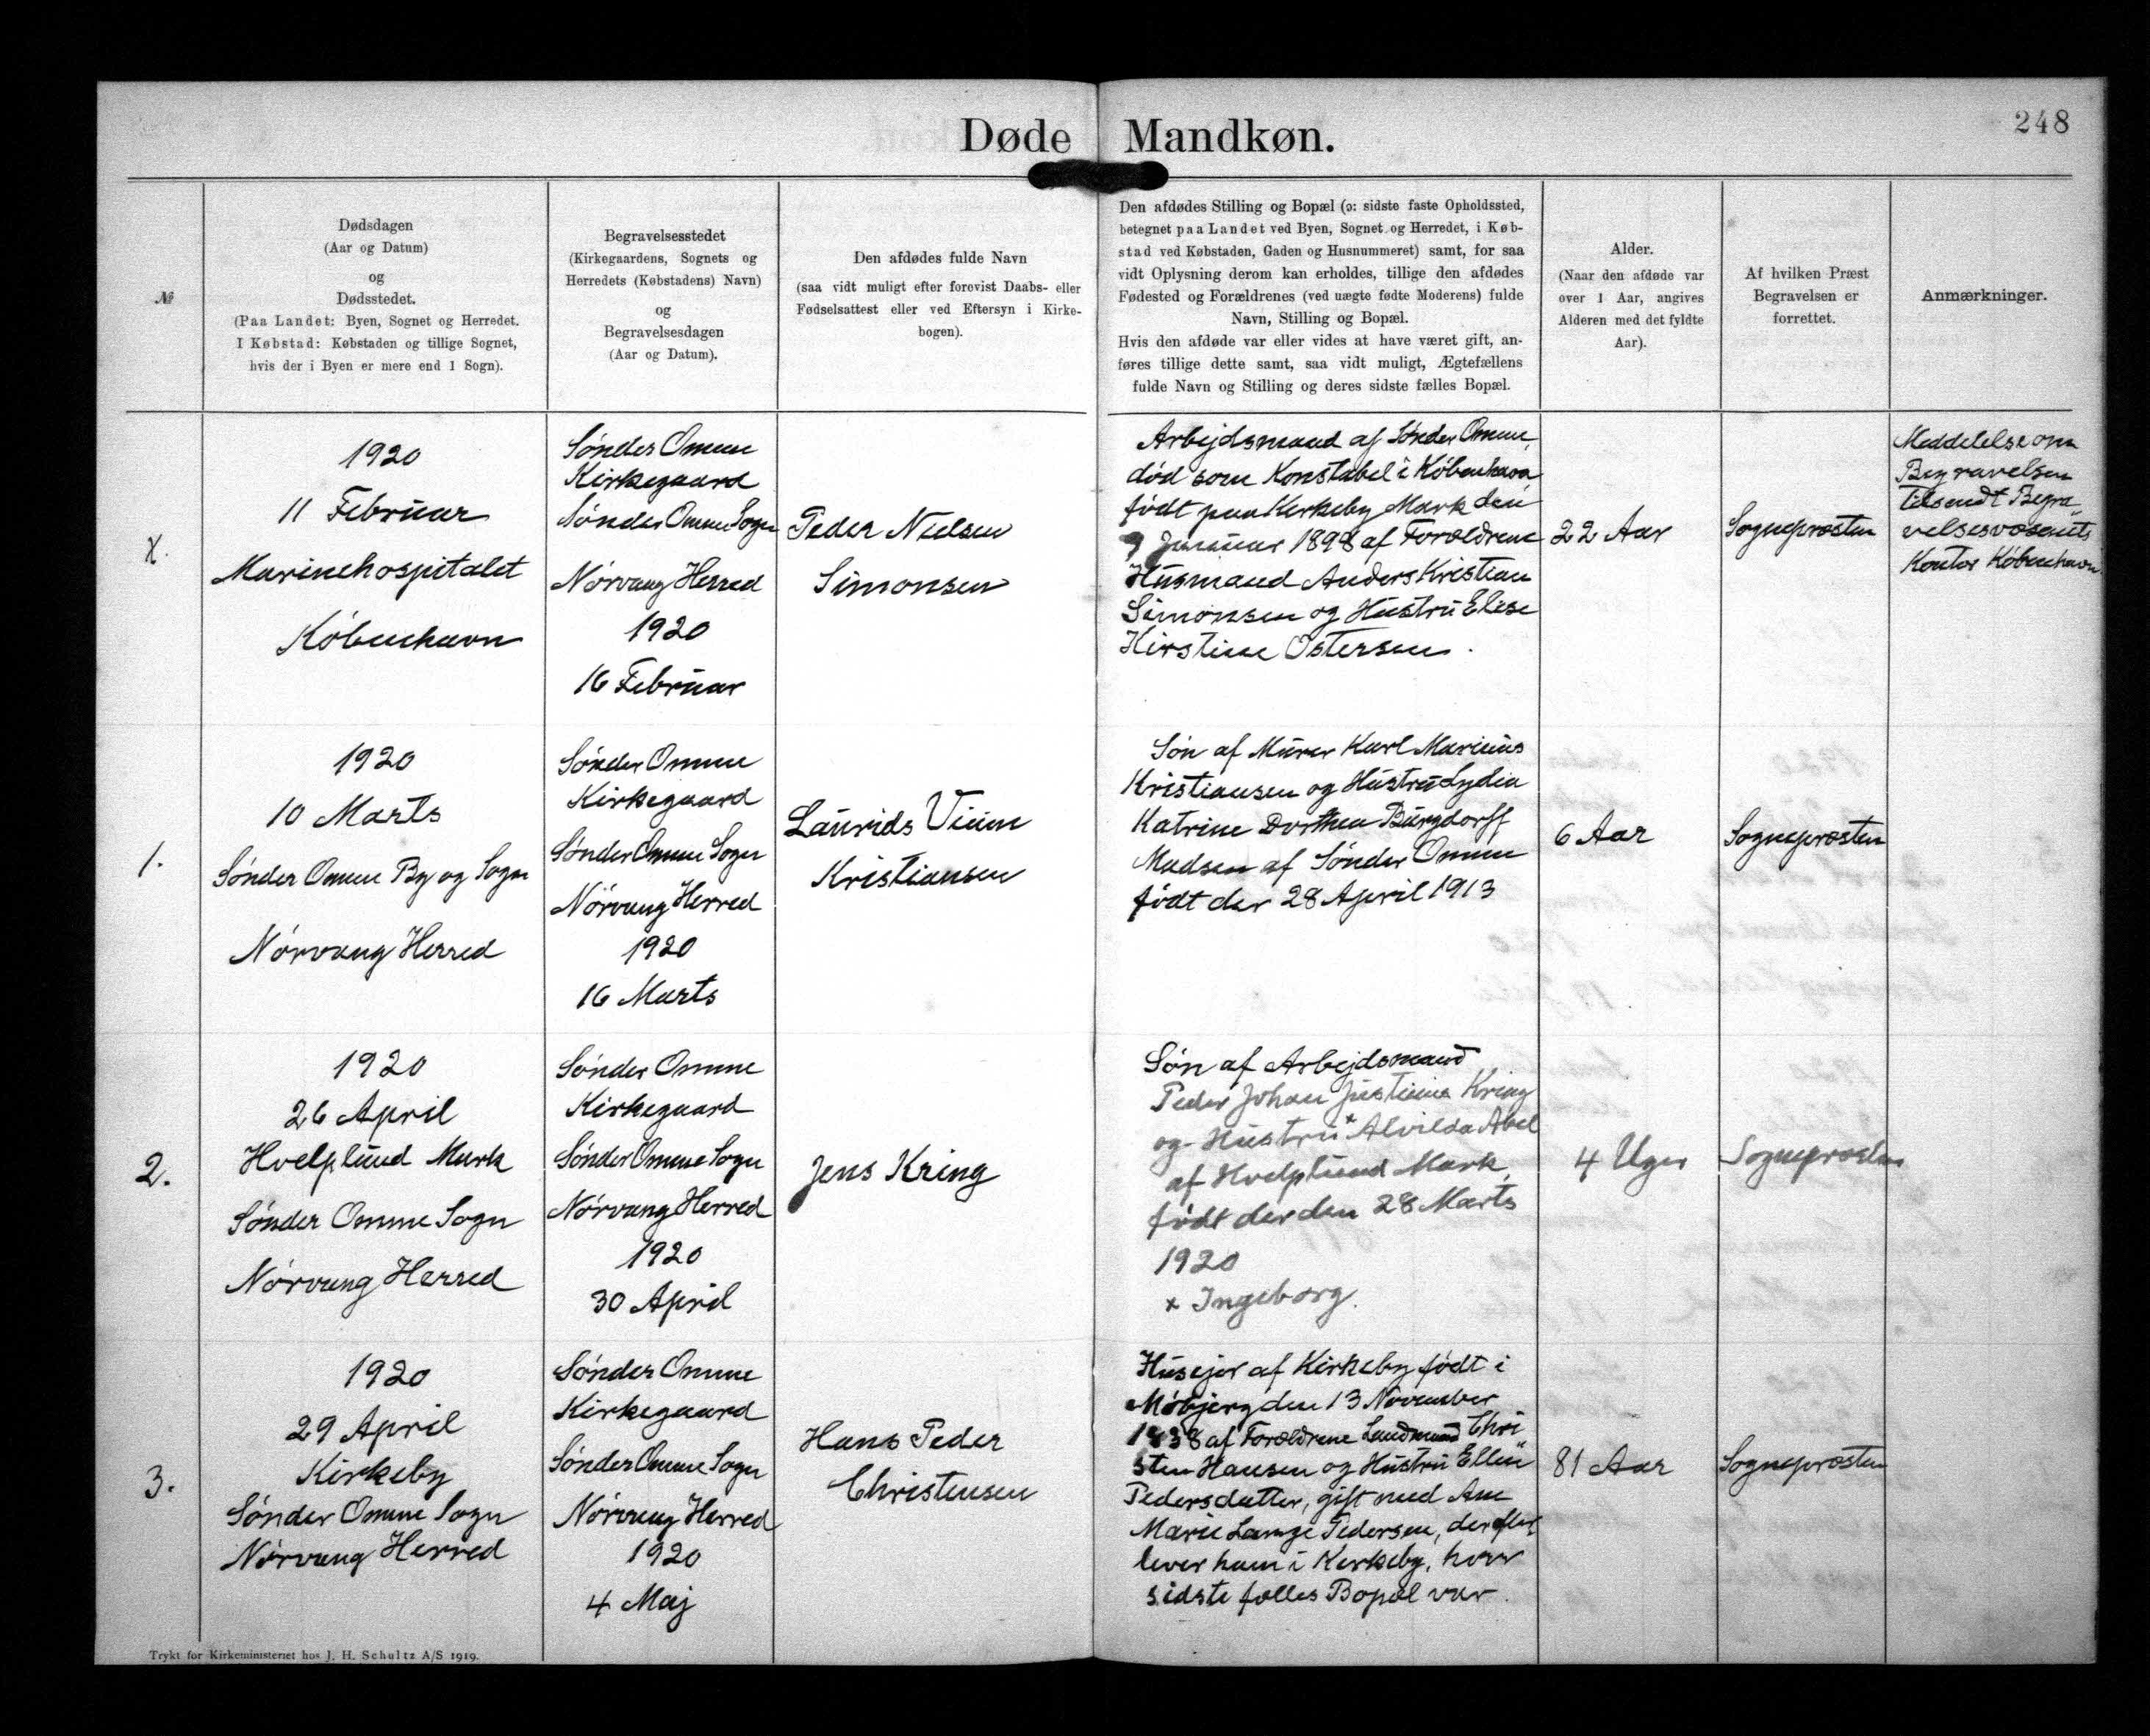 248
Døde Mandkøn.
№
Dødsdagen
(Aar og Datum)
og
Dødsstedet.
(Paa Landet: Byen, Sognet og Herredet.
I Købstad: Købstaden og tillige Sognet,
hvis der i Byen er mere end 1 Sogn).
Begravelsesstedet
(Kirkegaardens, Sognets og
Herredets (Købstadens) Navn)
og
Begravelsesdagen
(Aar og Datum).
Den afdødes fulde Navn
(saa vidt muligt efter forevist Daabs- eller
Fødselsattest eller ved Eftersyn i Kirke-
bogen).
Den afdødes Stilling og Bopæl (ɔ: sidste faste Opholdssted,
betegnet paa Landet ved Byen, Sognet og Herredet, i Køb-
stad ved Købstaden, Gaden og Husnummeret) samt, for saa
vidt Oplysning derom kan erholdes, tillige den afdødes
Fødested og Forældrenes (ved uægte fødte Moderens) fulde
Navn, Stilling og Bopæl.
Hvis den afdøde var eller vides at have været gift, an-
føres tillige dette samt, saa vidt muligt, Ægtefællens
fulde Navn og Stilling og deres sidste fælles Bopæl.
Alder.
(Naar den afdøde var
over 1 Aar, angives
Alderen med det fyldte
Aar).
Af hvilken Præst
Begravelsen er
forrettet.
Anmærkninger.
x.
1920
11 Februar
Marinehospitalet
København
Sønder Omme
Kirkegaard
Sønder Omme Sogn
Nørvang Herred
1920
16 Februar
Peder Nielsen
Simonsen
Arbejdsmand af Sønder Omme,
død som Konstabel i København
født paa Kirkeby Mark den
9 Januar 1898 af Forældrene
Husmand Anders Kristian
Simonsen og Hustru Elise
Kirstine Ostersen.
22 Aar
Sognepræsten
Meddelelse om
Begravelsen
tilsendt Begra-
velsesvæsenets
Kontor København
1.
1920
10 Marts
Sønder Omme By og Sogn
Nørvang Herred
Sønder Omme
Kirkegaard
Sønder Omme Sogn
Nørvang Herred
1920
16 Marts
Laurids Vium
Kristiansen
Søn af Murer Karl Marinus
Kristiansen og Hustru Lydia
Katrine Dorthea Burgdorff
Madsen af Sønder Omme
født der 28 April 1913
6 Aar
Sognepræsten
2.
1920
26 April
Hvelplund Mark
Sønder Omme Sogn
Nørvang Herred
Sønder Omme
Kirkegaard
Sønder Omme Sogn
Nørvang Herred
1920
30 April
Jens Kring
Søn af Arbejdsmand
Peder Johan Justinus Kring
og Hustru x Alvilda Abel
af Hvelplund Mark,
født der den 28 Marts
1920
x Ingeborg.
4 Uger
Sognepræsten
3.
1920
29 April
Kirkeby
Sønder Omme Sogn
Nørvang Herred
Sønder Omme
Kirkegaard
Sønder Omme Sogn
Nørvang Herred
1920
4 Maj
Hans Peder
Christensen
Husejer af Kirkeby født i
Møbjerg den 13 November
1838 af Forældrene Landmand Chri
sten Hansen og Hustru Ellen
Pedersdatter, gift med Ane
Marie Lange Pedersen, der efter
lever ham i Kirkeby, hvor
sidste fælles Bopæl var.
81 Aar
Sognepræsten
Trykt for Kirkeministeriet hos J. H. Schultz A/S 1919.